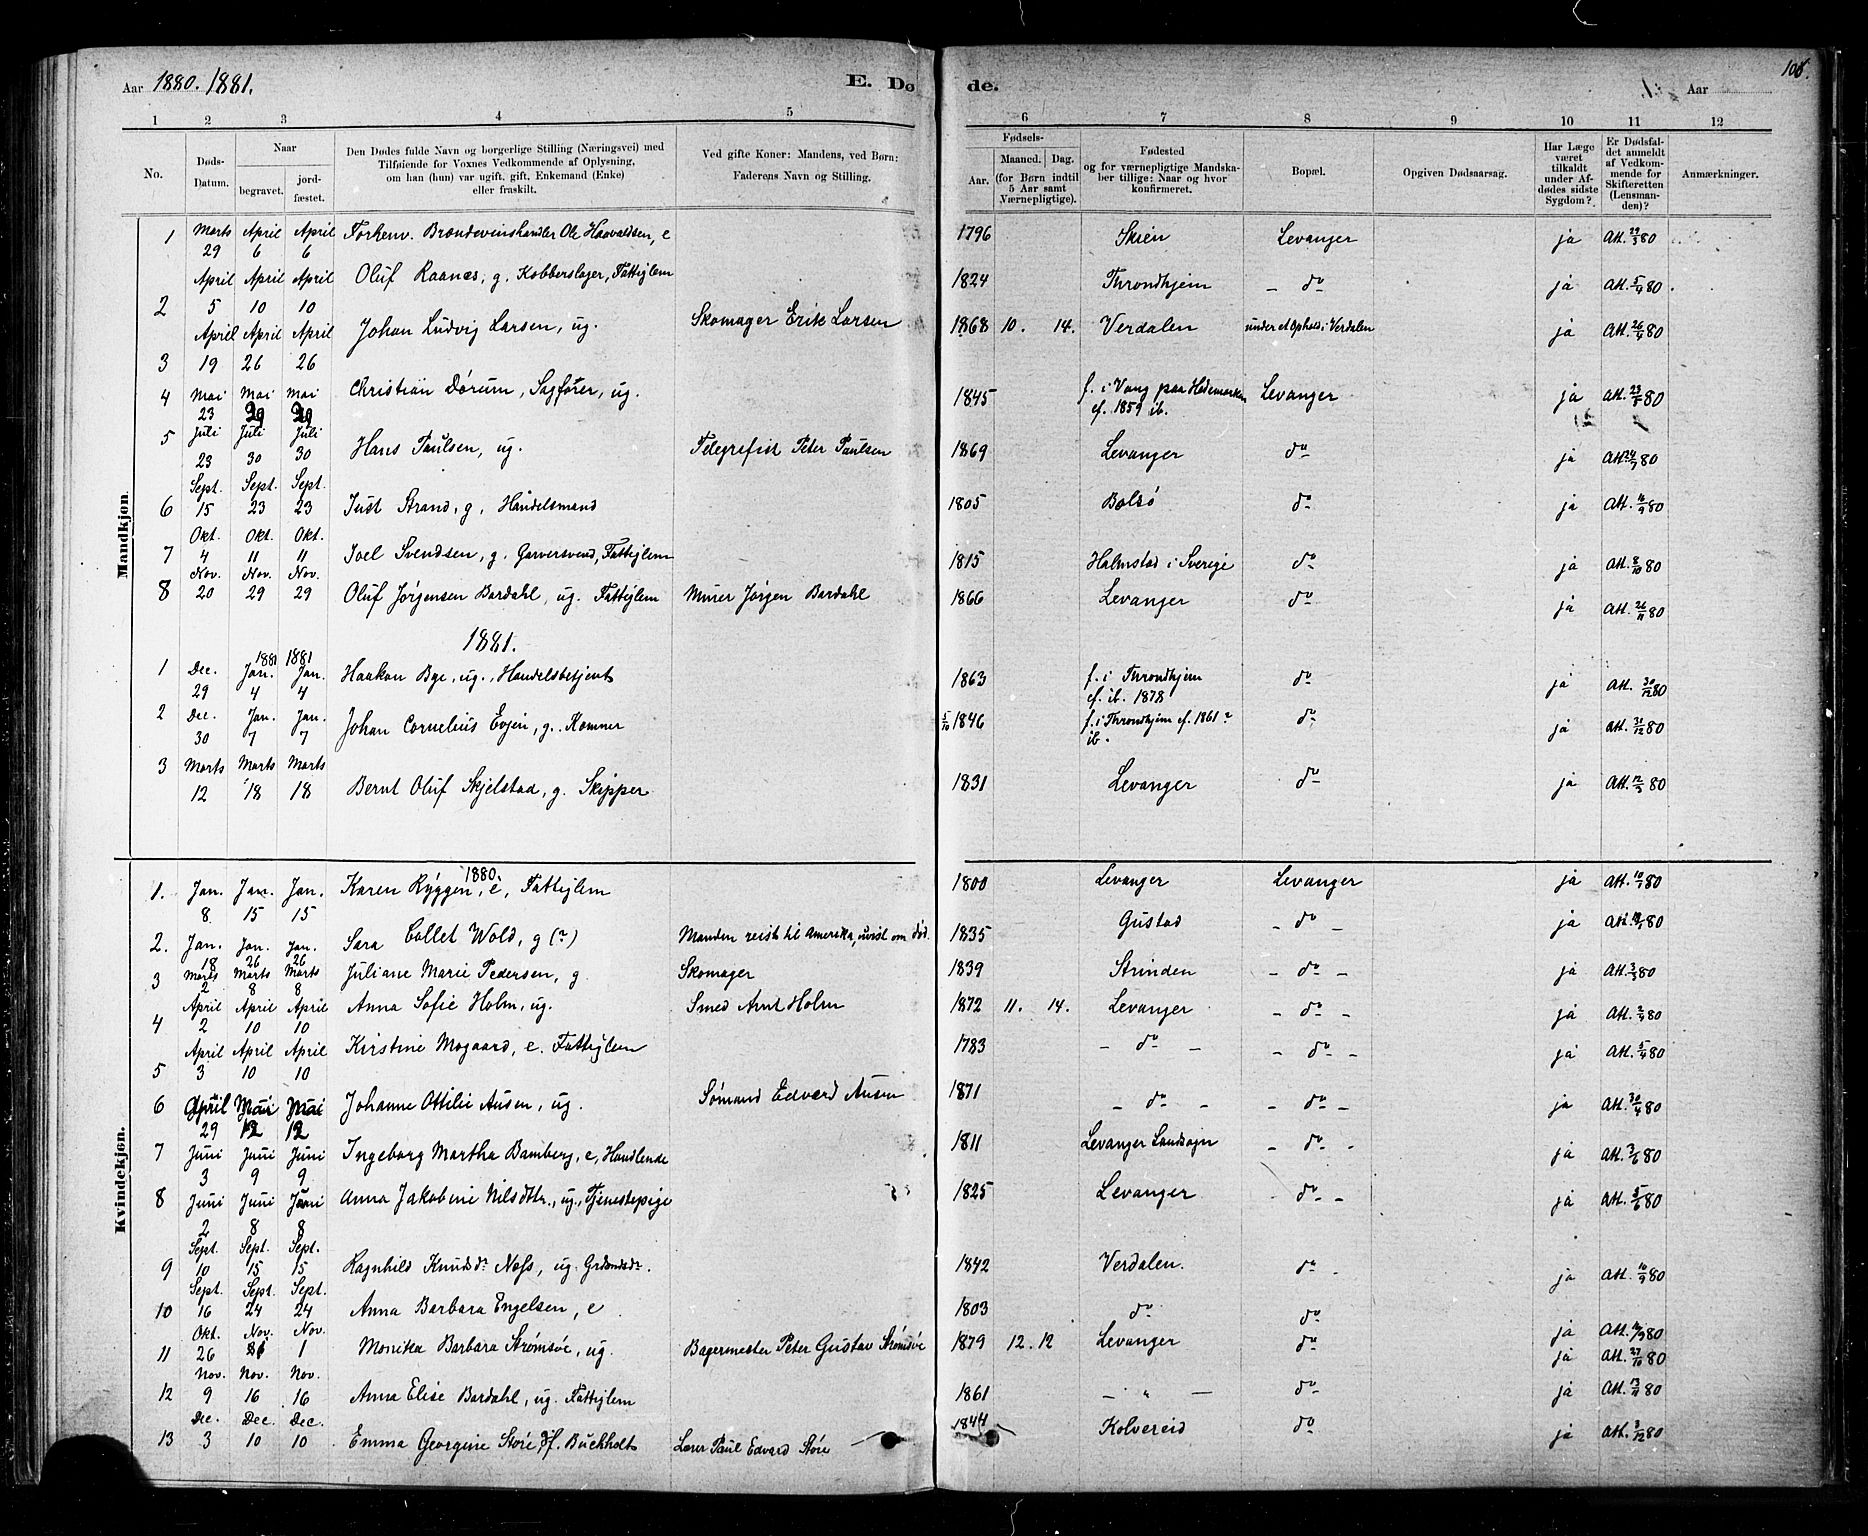 Aar 1880. 1881. E. Dø de. Aar 108.
1 2 3 4 5 6 7 8 9 10 11 12
No. Døds-Datum. Naar begravet. jordfæstet. Den Dødes fulde Navn og borgerlige Stilling (Næringsvei) med Tilføiende for Voxnes Vedkommende af Oplysning, om han (hun) var ugift, gift, Enkemand (Enke) eller fraskilt. Ved gifte Koner: Mandens, ved Børn: Faderens Navn og Stilling. Fødsels- Aar. Maaned. Dag. (for Børn indtil 5 Aar samt Værnepligtige). Fødested og for værnepligtige Mandskaber tillige: Naar og hvor konfirmeret. Bopæl. Opgiven Dødsaarsag. Har Læge været tilkaldt under Afdødes sidste Sygdom? Er Dødsfaldet anmeldt af Vedkommende for Skifteretten (Lensmanden)? Anmærkninger.
Mandkjøn.
1 Marts 29 April 6 April 6 Forhenv. Brændevinshandler Ole Haavaldsen, e 1796 Skien Levanger ja Att. 29/3 80
2 April 5 April 10 April 10 Oluf Raanes, g. Kobberslager, Fattiglem 1824 Throndhjem - do ja Att. 5/4 80.
3 April 19 April 26 April 26 Johan Ludvig Larsen, ug. Skomager Erik Larsen 1868 10. 14. Verdalen under et Ophold i Verdalen ja Att. 26/4 80
4 Mai 23 Mai 29 Mai 29 Christian Dørum, Sagfører, ug. 1845 f. i Vang paa Hedemarken cf. 1859 ib. Levanger ja Att. 23/5 80
5 Juli 23 Juli 30 Juli 30 Hans Paulsen, ug. Telegrafist Peter Paulsen 1869 Levanger do ja Att. 24/7 80
6 Sept. 15 Sept. 23 Sept. 23 Just Strand, g, Handelsmand 1805 Bolsø do ja Att. 16/9 80
7 Okt. 4 Okt. 11 Okt. 11 Joel Svendsen, g. Garversvend, Fattiglem 1815 Halmstad i Sverige do ja Att. 8/10 80
8 Nov. 20 Nov. 29 Nov. 29 Oluf Jørgensen Bardahl, ug. Fattiglem Murer Jørgen Bardahl 1866 Levanger do ja Att. 26/11 80
1881.
1 Dec. 29 1881 Jan. 4 1881 Jan. 4 Haakon Bye, ug., Handelsbetjent 1863 f. i Throndhjem cf. ib. 1878 do ja Att. 30/12 80
2 Dec. 30 Jan. 7 Jan. 7 Johan Cornelius Evjen, g. Kemner 5/10 1846 f. i Throndhjem cf. 1861 ? ib. do ja Att. 31/12 80
3 Marts 12 Marts 18 Marts 18 Bernt Oluf Skjelstad, g. Skipper 1831 Levanger do ja Att. 12/3 80
Kvindekjøn.
1880.
1. Jan. 8 Jan. 15 Jan. 15 Karen Ryggen, e, Fattiglem 1800 Levanger Levanger ja Att. 10/1 80
2. Jan. 18 Jan. 26 Jan. 26 Sara Collet Wold, g (?) Manden reist til Amerika, uvist om død. 1835 Gustad - do - ja Att. 80
3 Marts 2 Marts 8 Marts 8 Juliane Marie Pedersen, g. Skomager 1839 Strinden - do - ja Att. 3/3 80
4 April 2 April 10 April 10 Anna Sofie Holm, ug. Smed Arnt Holm 1872 11. 14. Levanger - do - ja Att. 2/4 80
5 April 3 April 10 April 10 Kirstine Mogaard, e. Fattiglem 1783 - do - - do - ja Att. 5/4 80
6 April 29 Mai 12 Mai 12 Johanne Ottilie Ausen, ug. Sømand Edvard Ausen 1871 - do - - do - ja Att. 30/4 80
7 Juni 3 Juni 9 Juni 9 Ingeborg Martha Bamberg, e, Handlende 1811 Levanger Landsogn - do - ja Att. 3/6 80
8 Juni 2 Juni 8 Juni 8 Anna Jakobine Nilsdttr., ug., Tjenestepige 1825 Levanger - do - ja Att. 5/6 80
9 Sept. 10 Sept. 15 Sept. 15 Ragnhild Knudsdr Næss, ug. Grdmdsdr. 1842 Verdalen. do - ja Att. 10/9 80
10 Sept. 16 Sept. 24 Sept. 24 Anna Barbara Engelsen, e 1803 do do ja Att. /9 80
11 Okt. 26 Nov. 1 Nov. 1 Monika Barbara Strømsøe, ug. Bagermester Peter Gustav Strømsøe 1879 12. 12 Levanger do ja Att. 27/10 80
12 Nov. 9 Nov. 16 Nov. 16 Anna Elise Bardahl, ug. Fattiglem 1861 - " - do ja Att. 13/11 80
13 Dec. 3 Dec. 10 Dec. 10 Emma Georgine Støre f. Buckholt Lærer Paul Edvard Støre 1844 Kolvereid do ja Att. 3/12 80